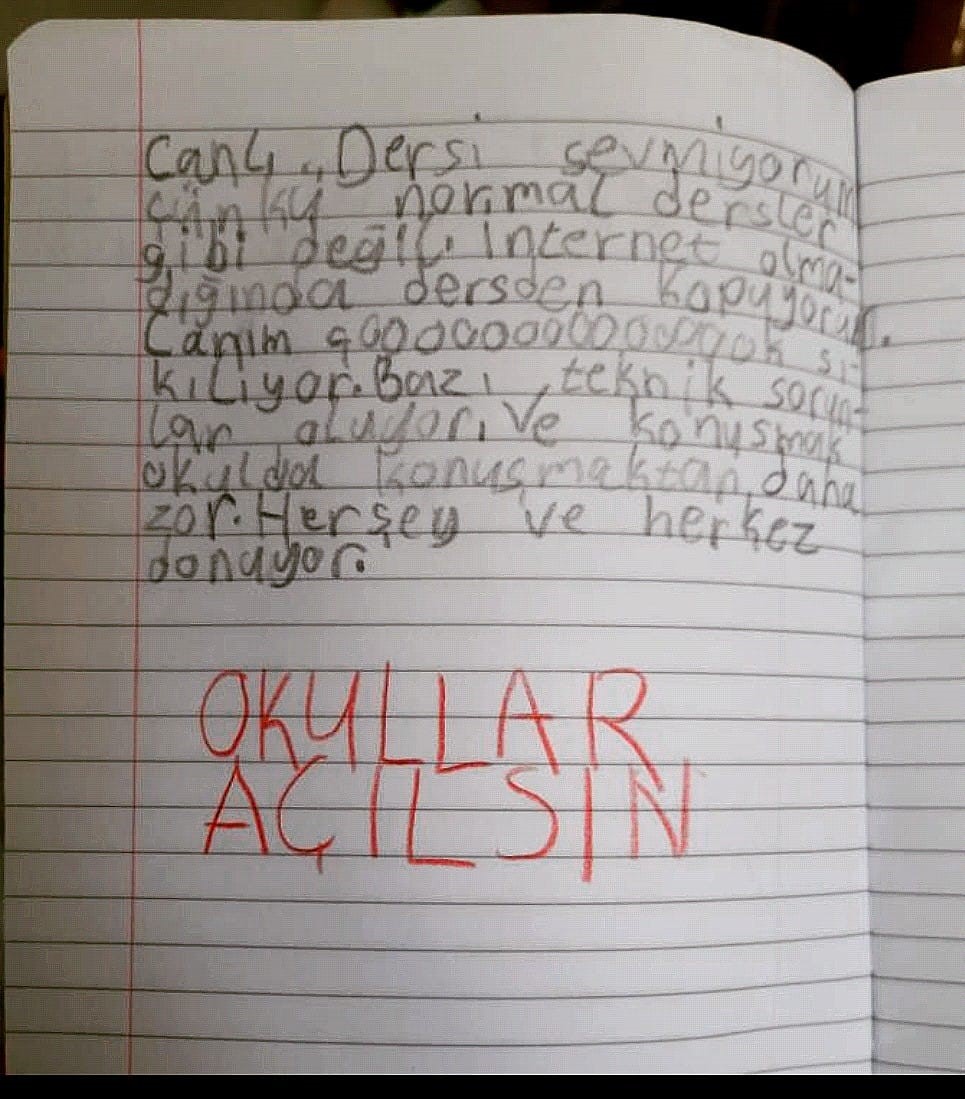 Canlı Dersi sevmiyorum
çünkü normal dersler
gibi değil. Internet olma-
dığında dersden kopuyorum.
Canım çoooooooooooook sı-
kılıyor. Bazı teknik sorun-
lar oluyor. Ve konuşmak
okulda konuşmaktan daha
zor. Herşey ve herkez
donuyor.
OKULLAR
AÇILSIN